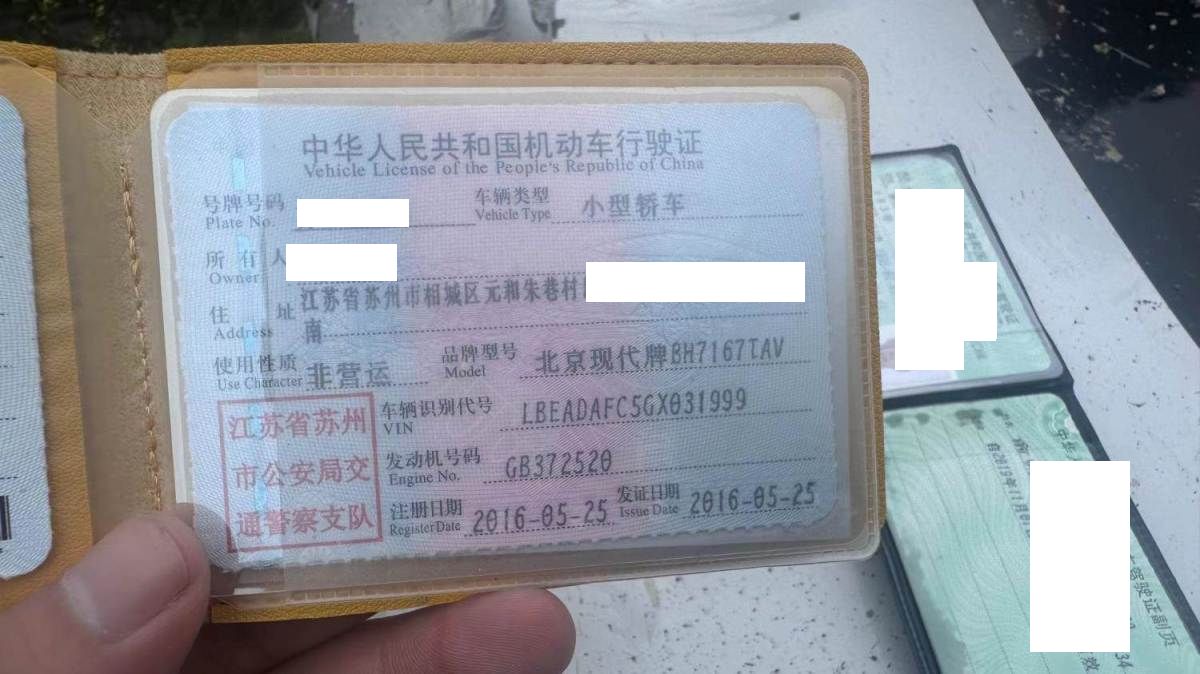 中华人民共和国机动车行驶证
Vehicle License of the People's Republic of China
号牌号码
Plate No.
车辆类型 小型轿车
Vehicle Type
所有人
Owner
住址 江苏省苏州市相城区元和朱巷村
Address 南
使用性质 非营运
Use Character
品牌型号 北京现代牌BH7167TAV
Model
江苏省苏州
市公安局交
通警察支队
车辆识别代号 LBEADAFC5GX031999
VIN
发动机号码 GB372520
Engine No.
注册日期 2016-05-25
Register Date
发证日期 2016-05-25
Issue Date
驾驶证副页